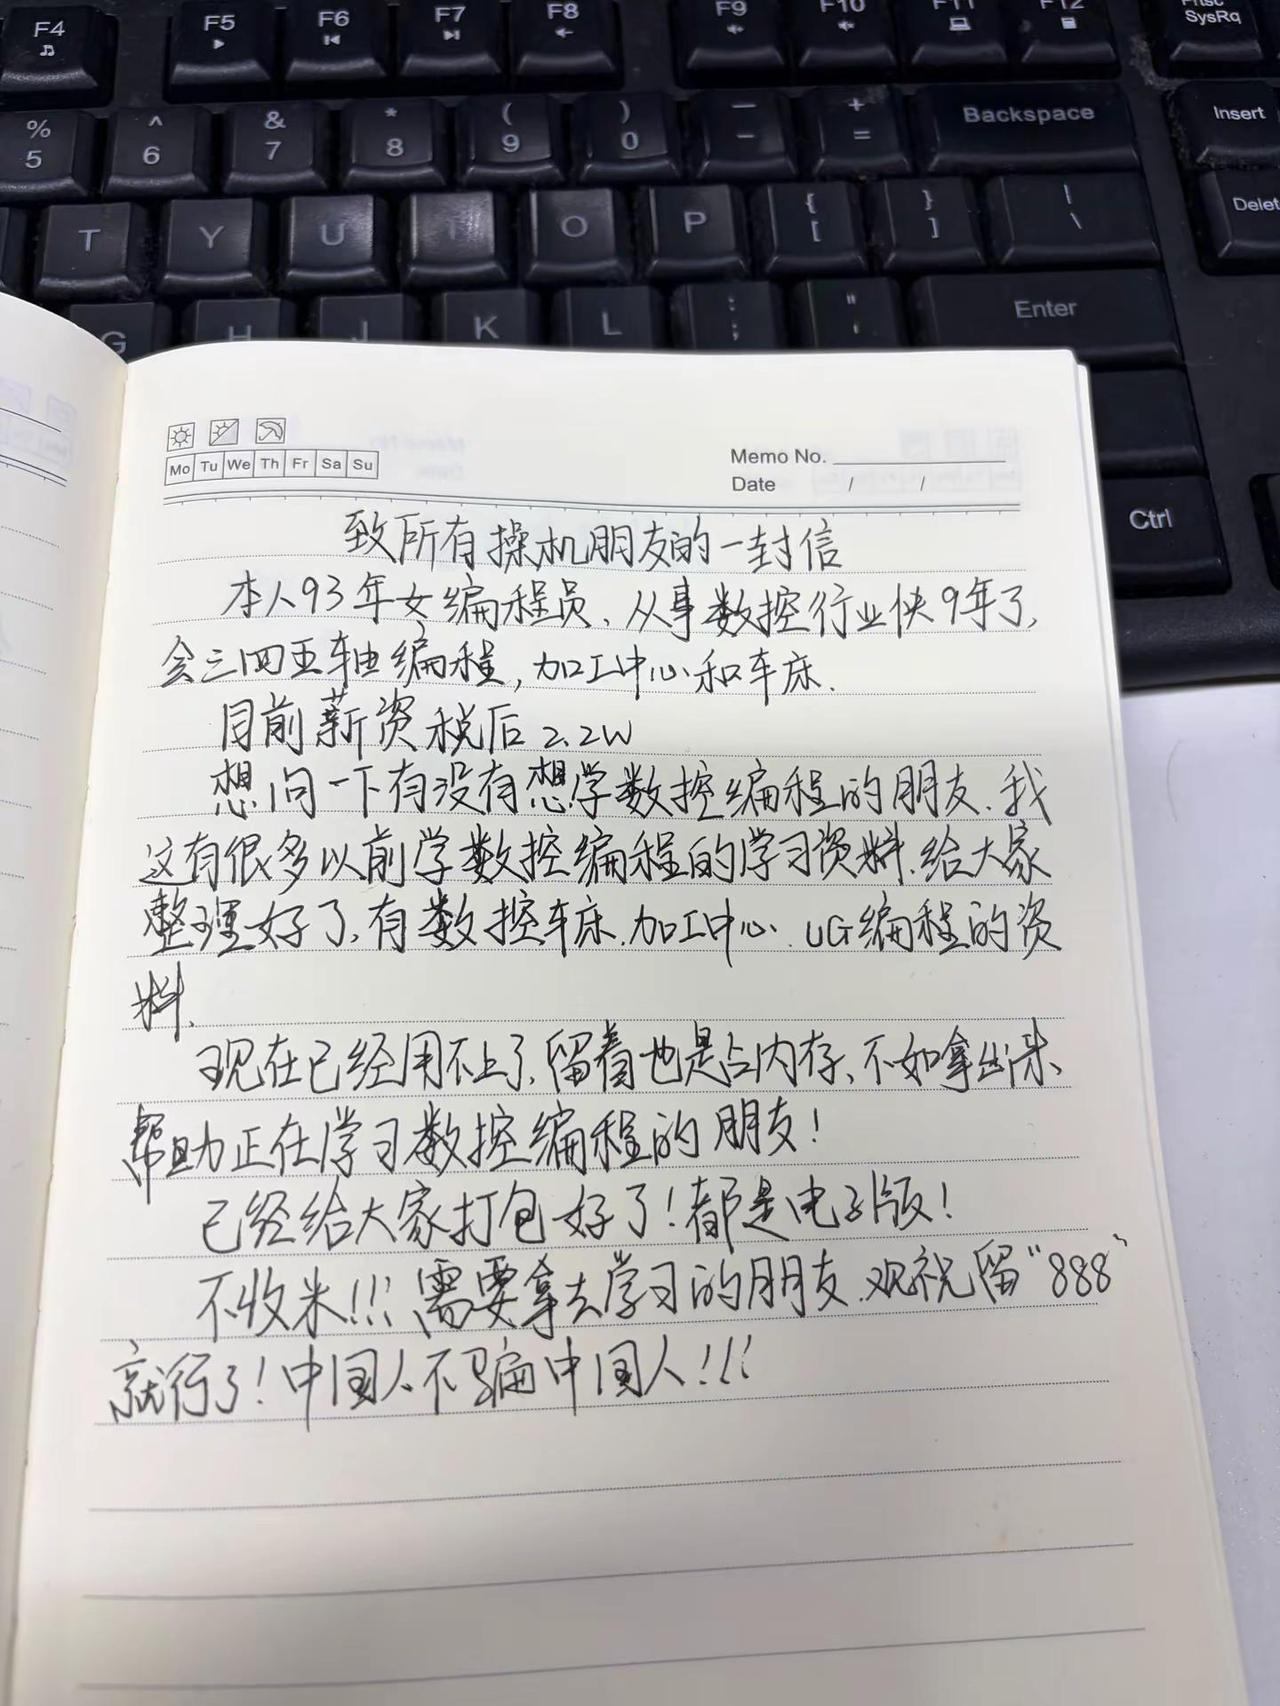 F4 F5 F6 F7 F8 F9 F10 F11 F12 PrtSc SysRq
% 5 ^ 6 & 7 * 8 ( 9 ) 0 — - + = Backspace Insert
T Y U I O P { [ } ] | \ Delet
G H J K L : ; " ' Enter
Ctrl
Mo Tu We Th Fr Sa Su
Memo No.
Date / /
致所有操机朋友的一封信
本人93年女编程员、从事数控行业快9年了,
会三四五轴编程,加工中心和车床.
目前薪资税后2.2W
想问一下有没有想学数控编程的朋友.我
这有很多以前学数控编程的学习资料.给大家
整理好了,有数控车床.加工中心.UG编程的资
料.
现在已经用不上了,留着也是占内存、不如拿出来
帮助正在学习数控编程的朋友!
已经给大家打包好了!都是电子版!
不收米!!!需要拿去学习的朋友.观祝留"888"
就行了!中国人不骗中国人!!!